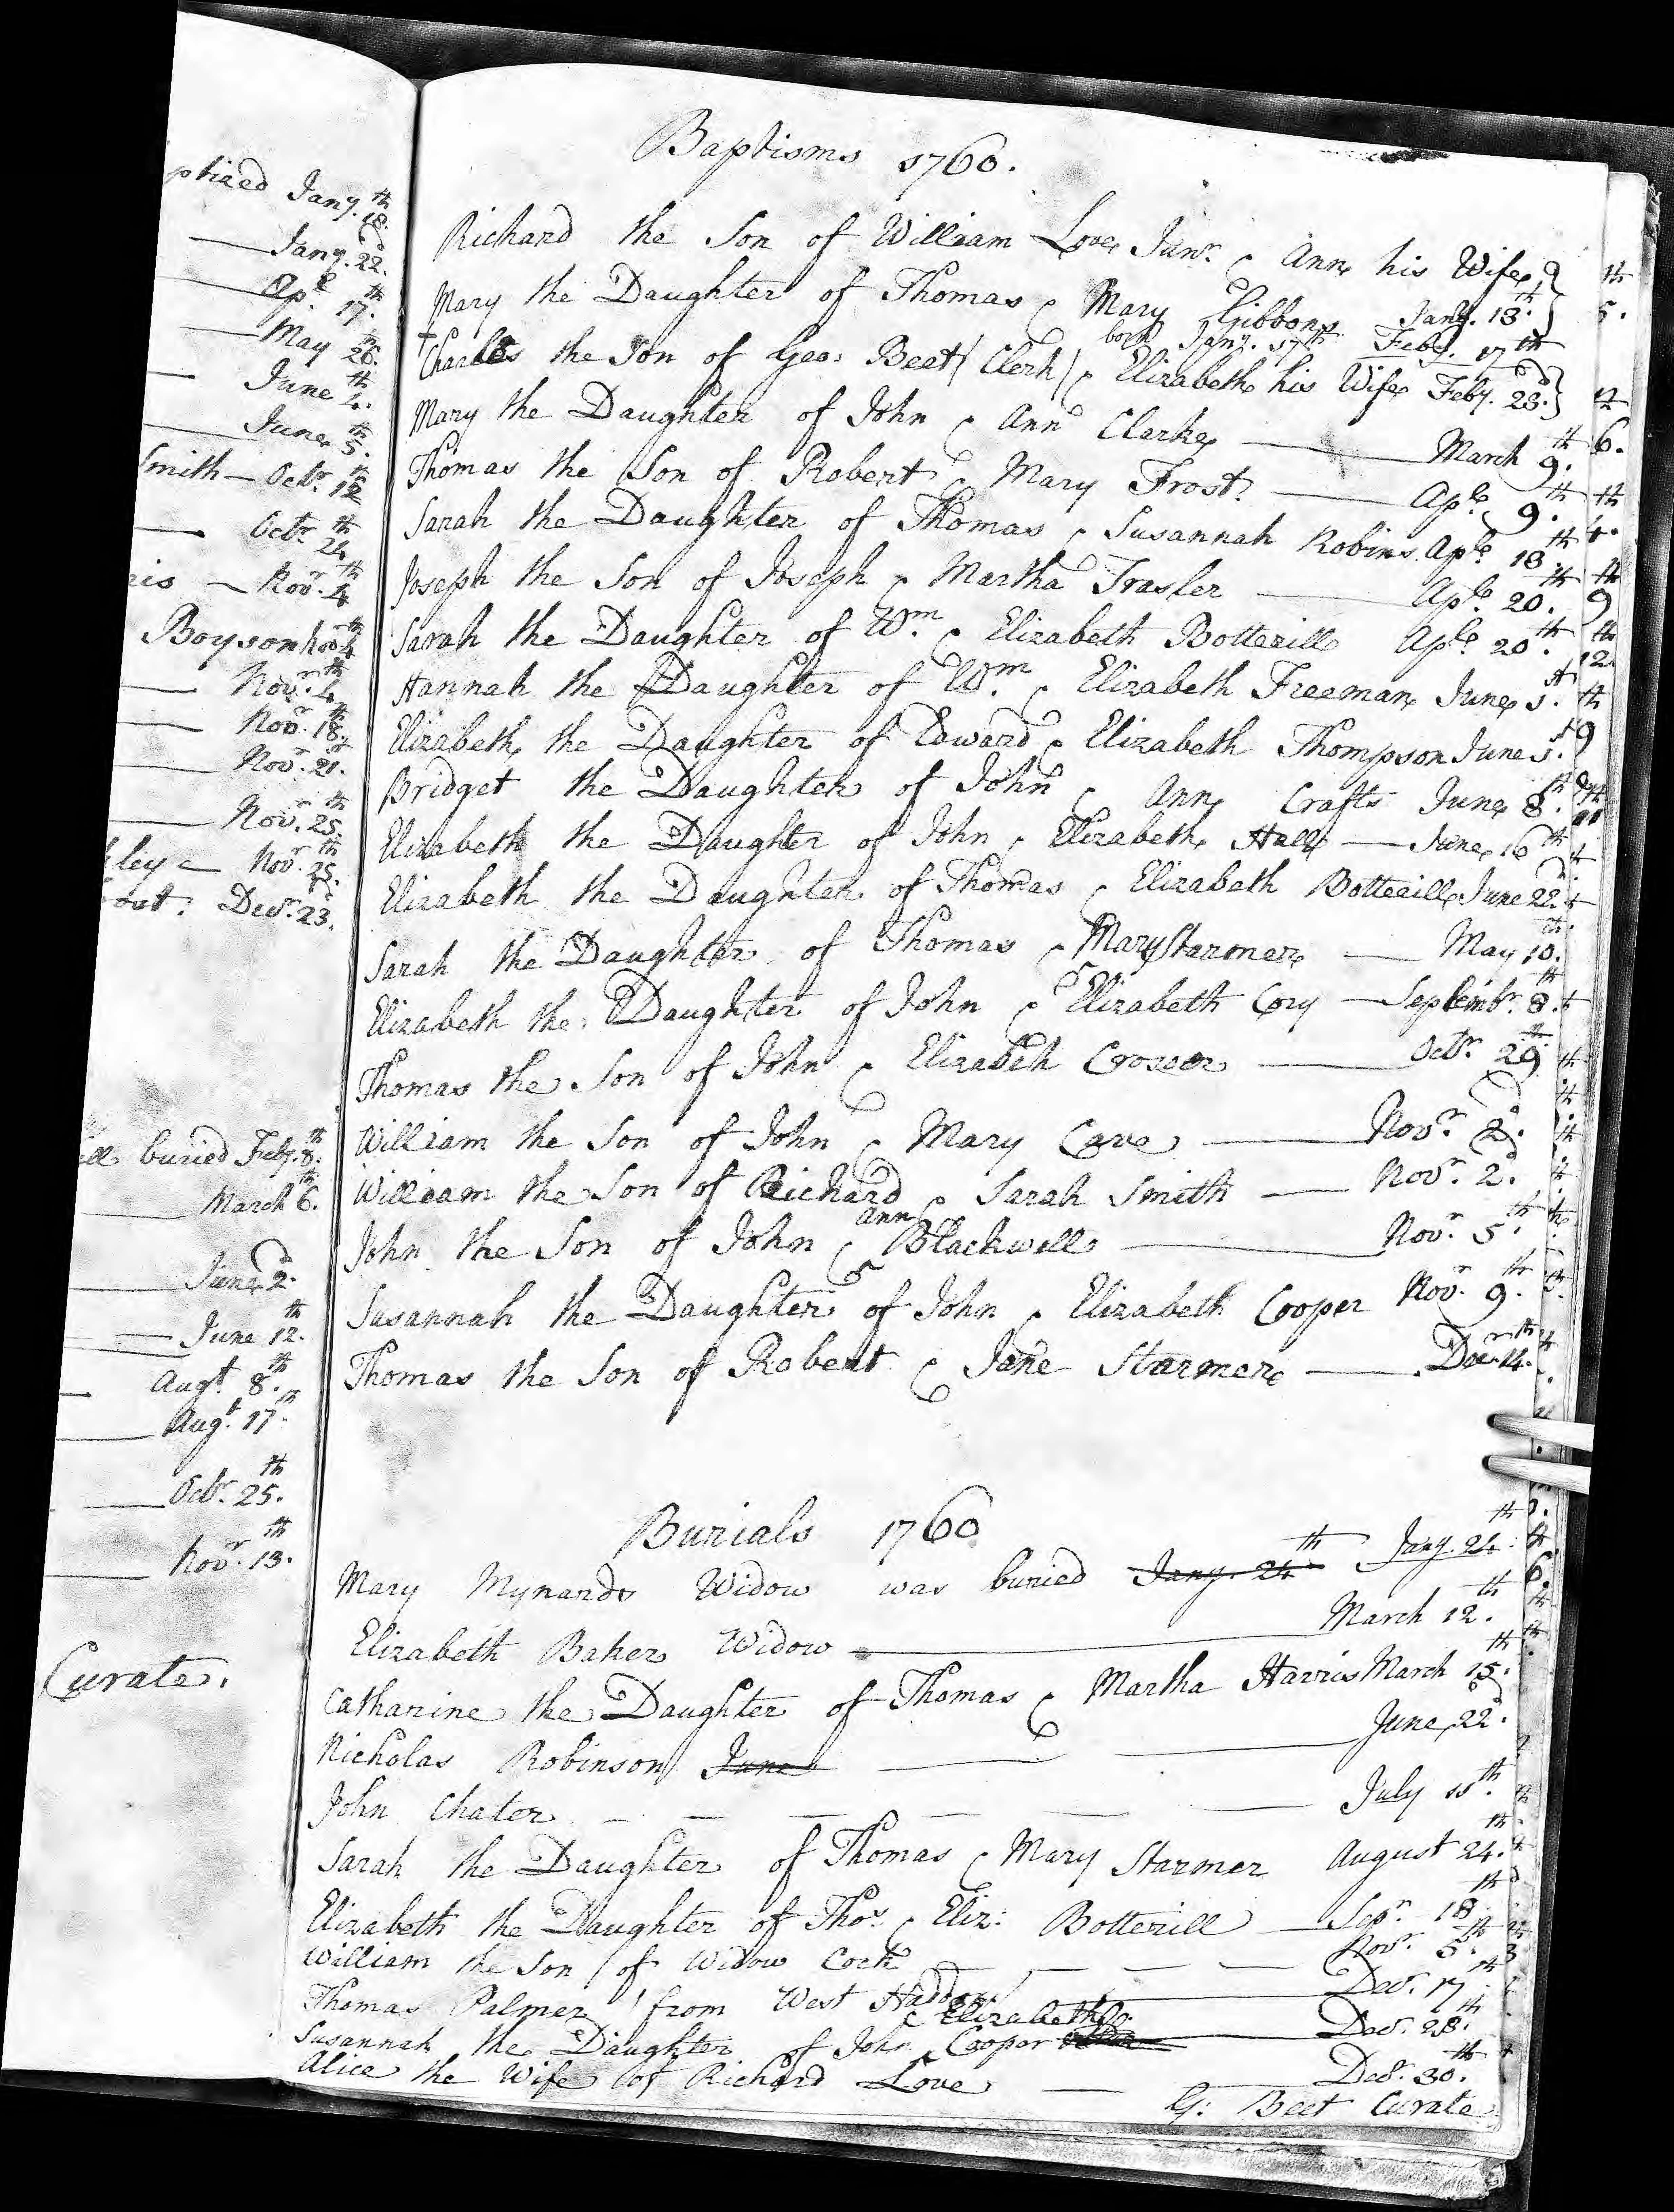 ptized Jany. 18th
Jany. 22d.
Apl. 17th.
May 26th.
June 4th.
June 5th.
Smith — Octr. 12th
Octr. 24th
ris — Novr. 4th
Boyson Novr 4th
Novr. 4th
Novr. 18th.
Novr. 21st.
Novr. 25th.
kley — Novr. 25th.
out. Decr. 23d.
ill buried Feby. 8th.
March 6th.
June 2d.
June 12th.
Augt. 8th.
Augt. 17th.
Octr. 25th.
Novr. 13th.
Curate.
Baptisms 1760.
Richard the Son of William Love Junr. & Ann his Wife
Jany. 13th.
Mary the Daughter of Thomas & Mary Gibbons Feby. 17th
born Jany. 17th
Charles the Son of Geo: Beet (Clerk) & Elizabeth his Wife Feby. 23d.
Mary the Daughter of John & Ann Clarke — March 9th.
Thomas the Son of Robert & Mary Frost. — Aple. 9th.
Sarah the Daughter of Thomas & Susannah Robins Aple. 13th.
Joseph the Son of Joseph & Martha Trasler — Aple. 20th.
Sarah the Daughter of Wm. & Elizabeth Botterill Aple. 20th.
Hannah the Daughter of Wm. & Elizabeth Freeman June 1st.
Elizabeth the Daughter of Edward & Elizabeth Thompson June 1st.
Bridget the Daughter of John & Ann Crafts June 8th.
Elizabeth the Daughter of John & Elizabeth Hall — June 16th
Elizabeth the Daughter of Thomas & Elizabeth Botterill June 22d.
Sarah the Daughter of Thomas & Mary Starmer — May 10th.
Elizabeth the Daughter of John & Elizabeth Cory — Septembr. 8th.
Thomas the Son of John & Elizabeth Crosser — Octr. 29th.
William the Son of John & Mary Cave — Novr. 2d.
William the Son of Richard & Sarah Smith — Novr. 2d.
John the Son of John & Ann Blackwell — Novr. 5th.
Susannah the Daughter of John & Elizabeth Cooper Novr. 9th.
Thomas the Son of Robert & Jane Starmer — Decr. 14th.
Burials 1760
Mary Mynards Widow was buried Jany. 24th Jany. 24th.
Elizabeth Baker Widow — March 12th.
Catharine the Daughter of Thomas & Martha Harris March 15th.
Nicholas Robinson June — June 22d.
John Chater — July 11th.
Sarah the Daughter of Thomas & Mary Starmer August 24th.
Elizabeth the Daughter of Thos. & Eliz: Botterill — Sepr. 18th
William the Son of Widow Cock — Novr. 5th.
Thomas Palmer from West Haddon — Decr. 17th.
Susannah the Daughter of John & Elizabeth Cooper — Decr. 28th.
Alice the Wife of Richard Love — Decr. 30th.
G: Beet Curate